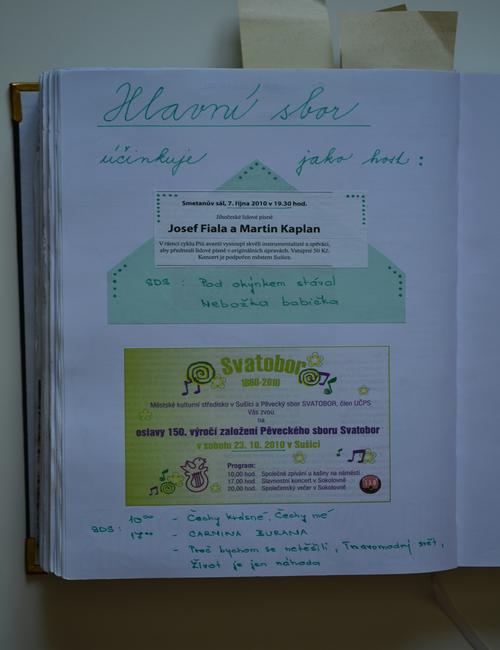 Hlavní sbor
účinkuje jako host:
Smetanův sál, 7. října 2010 v 19.30 hod.
Jihočeské lidové písně
Josef Fiala a Martin Kaplan
V rámci cyklu Pítá avanti vystoupí skvělí instrumentalisté a zpěváci,
aby přednesli lidové písně v originálních úpravách. Vstupné 50 Kč.
Koncert je podpořen městem Sušice.
SDS: Pod okýnkem stával
Nebožka babička
Svatobor
1860-2010
Městské kulturní středisko v Sušici a Pěvecký sbor SVATOBOR, člen UČPS
Vás zvou
na
oslavy 150. výročí založení Pěveckého sboru Svatobor
v sobotu 23. 10. 2010 v Sušici
Program:
10,00 hod. Společné zpívání u kašny na náměstí
17,00 hod. Slavnostní koncert v Sokolovně
20,00 hod. Společenský večer v Sokolovně
SDS: 10⁰⁰ - Čechy krásné, Čechy mé
17⁰⁰ - CARMINA BURANA
- Proč bychom se netěšili, Tmavomodrý svět,
Život je jen náhoda